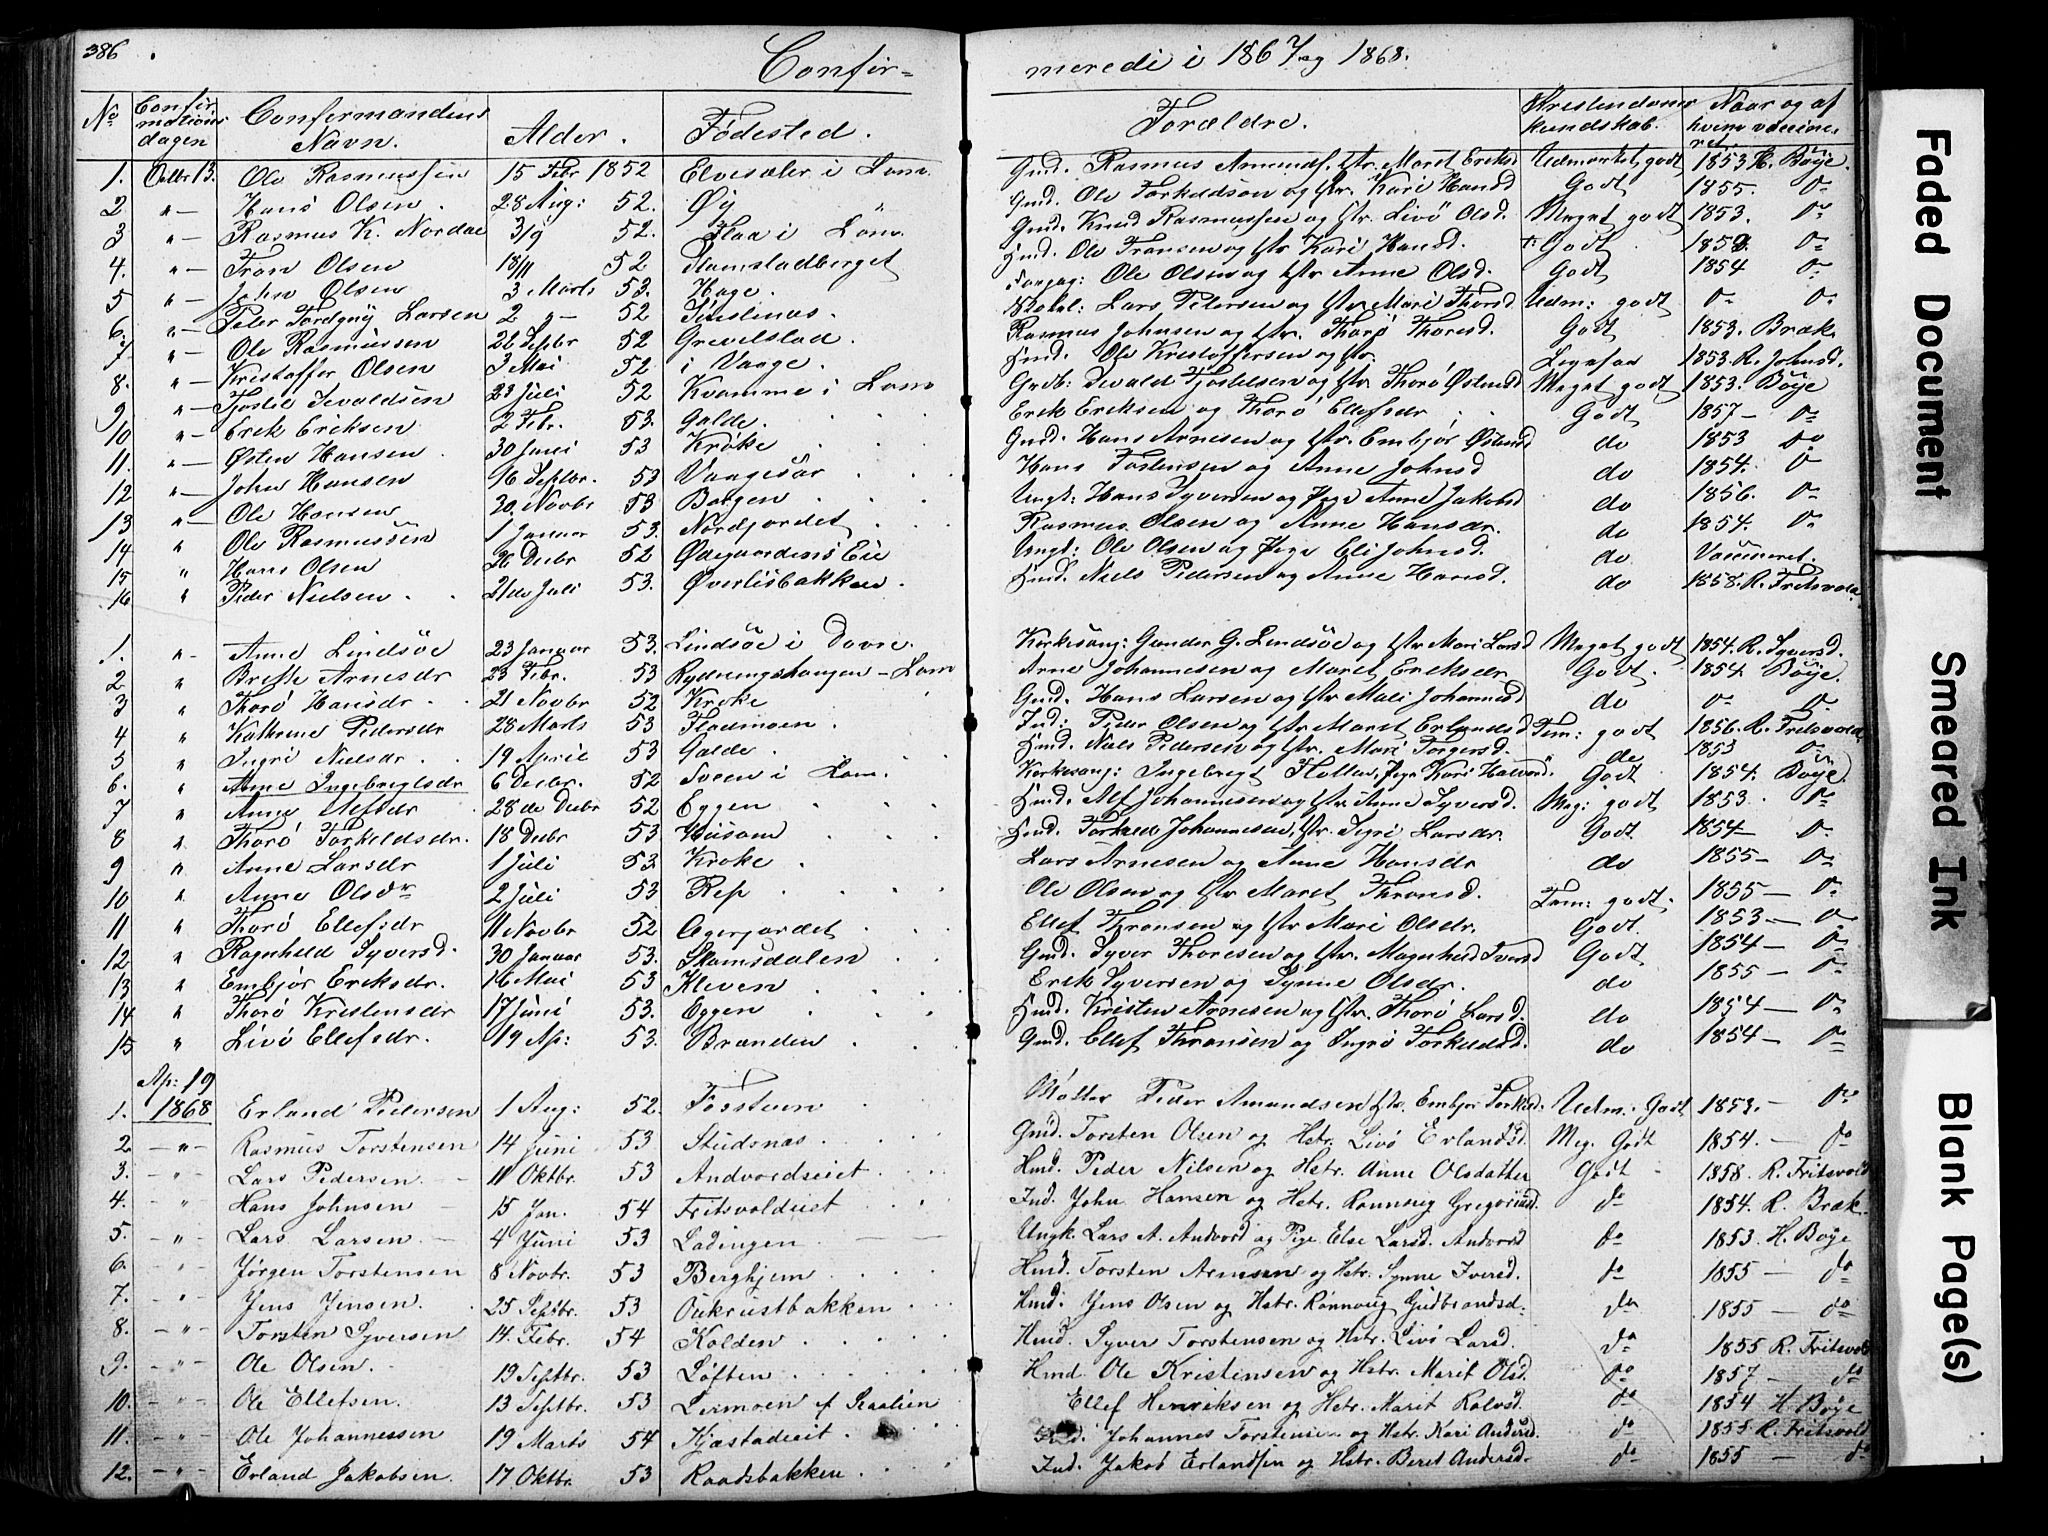 386
Confir= meredi i 1867 og 1868.
No Confirmations dagen Confermandens Navn. Alder. Fødested. Forældre. Kristendoms kundskab. Naar og af hvem vaccineret
1. Octbr 13. Ole Rasmussen 15 Febr 1852 Elvesæter i Lom. Gmd. Rasmus Amunds. Hstr. Marit Eriksd Udmærket godt 1853 H. Bøye.
2 "— Hans Olsen 28 Aug: 52. Øy Gmd. Ole Torkeldsen og Hstr. Kari Hansd Godt 1855. do
3 "— Rasmus K. Nordal 3/9 52. Flaa i Lom. Gmd. Knud Rasmussen og Hstr. Livö Olsd. Meget godt 1853. do
4. "— Tron Olsen 18/11 52 Hamstadberget Hmd. Ole Tronsen og Hstr Kari Hansd. Godt do
5 "— John Olsen 3 Marts 53. Hage. Ole Olsen og Hstr Anne Olsd. Godt 1854 do
6. "— Peter Larsen 2 52 Lars Pedersen og Hstr. Mari Thorsd Udm: godt do do
7 "— Ole Rasmussen 26 Septbr 52 Grevelstad. Rasmus Johnsen og Hstr. Thorø Thoresd. Godt 1853. Bræk.
8. "— Kristoffer Olsen 3 Mai 52 i Vaage. Hmd. Ole Kristoffersen og Hstr. 1853. R. Johnsd.
9 "— Tjostel Sevaldsen 23 Juli 52 Kvamme i Lom Grdb: Sevald Tjostelsen og Hstr Thorø Østensd Meget godt 1853. Bøye
10 "— Erik Eriksen 2 Febr. 53. Galde. Erik Eriksen og Thorø Ellefsdr Godt 1857 — do
11. "— Østen Hansen 30 Juni 53 Krøke Gmd. Hans Arnesen og Hstr. Embjør Østensd do 1853 do
12 "— John Hansen 16 Septbr. 53 Vaagesär Hans Tostensen og Anne Johnsd do 1854. do
13 "— Ole Hansen 20. Novbr 53 Borgen Ungk: Hans Syversen og Pige Anne Jakobsd do 1856. do
14 " Ole Rasmussen 1 Januar 53. Nordfjordet Rasmus Olsen og Anne Hansdr. do 1854. do
15 " Hans Olsen 26 Decbr 52 Ødegaardens Eie Ungk: Ole Olsen og Pige Eli Johnsd. do Vaccineret.
16 " Peder Nielsen 21de Juli 53. Øverlisbakken. Hmd. Niels Pedersen og Anne Hansd. do 1858. R. Fritsvold.
1. " Anne Lindsöe 23 Januar 53. Lindsöe i Dovre. Kirkesang: Gunder G. Lindsöe og Hstr Mari Larsd Meget godt 1854. R. Syversd.
2 " Brette Arnesdr 23 Febr. 53 Rydningshaugen — Lom Arne Johannesen og Marit Eriksdr Godt. 1854. Bøye.
3 " Thorø Hansdr. 21 Novbr 52 Kroke Gmd. Hans Larsen og Hstr Mali Johannesd do do do
4 " Kathrine Pedersdr 28 Marts 53 Fladmoen. Ind: Peder Olsen og Hstr Marit Erlandsd Tem: godt 1856. R. Fritsvold
5 " Ingri Nielsdr. 19 April 53 Galde. Hmd. Niels Pedersen og Hstr. Mari Torgersd. do 1853 do
6. " Anne Ingebregtsdr 6 Decbr. 52 Sveen i Lom. Kirkesang: Ingebregt Flatten, Pige Kari Halvord. Godt 1854. Bøye
7 " Anne Alfsdr 28de Decbr 52 Eggen Hmd. Alf Johannesen og Hstr Anne Syversd. Meg: godt 1853. do
8 " Thorø Torkeldsdr. 18 Decbr 53 Husom Hmd. Torkeld Johannesen, Hstr. Sigri Larsdr. Godt 1854 — do
9 " Anne Larsdr 1 Juli 53 Kroke Lars Arnesen og Anne Hansdr do 1855 — do
10 " Anne Olsdr 2 Juli 53 Rep Ole Olsen og Hstr Marit Thronsd. Tem: godt. 1855 — do
11 " Thorø Ellefsdr 11 Novbr 52 Agerjordet Ellef Thronsen og Hstr Mari Olsdr. Godt. 1853 — do
12 " Ragnhild Syversd. 30 Januar 53. Skamsdalen Gmd. Syver Thoresen og Hstr. Magnhild Iversd Godt 1854 — do
13 " Embjør Eriksdr. 16 Mai 53 Kleven Erik Syversen og Synne Olsdr. do 1855 — do
14 " Thorø Kristensdr 17 Juni 53. Eggen Hmd. Kristen Arnesen og Hstr. Thorø Larsd. do 1854 — do
15 " Livö Ellefsdr. 19 Ap: 53. Brænden Gmd. Ellef Thronsen og Ingrö Torkeldsd. do 1854 — do
Ap: 19
1. 1868 Erland Pedersen 1 Aug: 52. Fossteien Peder Amundsen Hstr. Embjør Torkeld. Udm. Godt 1853. — do
2. — " — Rasmus Torstensen 14 Juni 53 Studsnæs Gmd. Torsten Olsen og Hstr. Livö Erlandsd. Meg. Godt 1854. — do
3. — " — Lars Pedersen. 11 Oktbr. 53 Andvordseiet Hmd. Peder Nilsen og Hstr. Anne Olsdatter Godt 1858. R. Fritsvold
4. — " — Hans Johnsen 15 Jan. 54 Fritsvoldeiet Ind. John Hansen og Hstr. Rønnaug Gregoriusd. do 1854. R. Bræk.
5. — " — Lars Larsen. 4 Juni 53 Ladingen Ungk. Lars A. Andvord og Pige Else Larsd. Andvord do 1853. H. Bøye
6. — " — Jørgen Torstensen 8 Novbr. 53 Berghjem Hmd. Torsten Arnesen og Hstr. Synne Iversd. do 1855 — do
7. — " — Jens Jensen. 25 Septbr. 53 Oukrustbakken Hmd. Jens Olsen og Hstr. Rønnaug Gudbrandsd. do 1855 — do
8. — " — Torsten Syversen 14. Febr. 54 Kolden Hmd. Syver Torstensen og Hstr. Livö Larsd. do 1855 R. Fritsvold
9. — " — Ole Olsen. 19 Septbr. 53 Løften Hmd Ole Kristensen og Hstr. Marit Olsd. do 1857 — do
10. — " — Ole Ellefsen. 13 Septbr. 53 Leirmoen af Raalien Ellef Henriksen og Hstr. Marit Rolvsd. do 1854 H. Bøye
11. — " — Ole Johannessen 19 Marts 54 Kjæstadeiet Johannes Torstensen og Hstr. Kari Andersd. do 1855 R. Fritsvold
12. — " — Erland Jakobsen. 17 Oktbr. 53 Raadsbakken Ind. Jakob Erlandsen og Hstr. Beret Andersd. do 1855 — do
Faded Document
Smeared Ink
Blank Page(s)